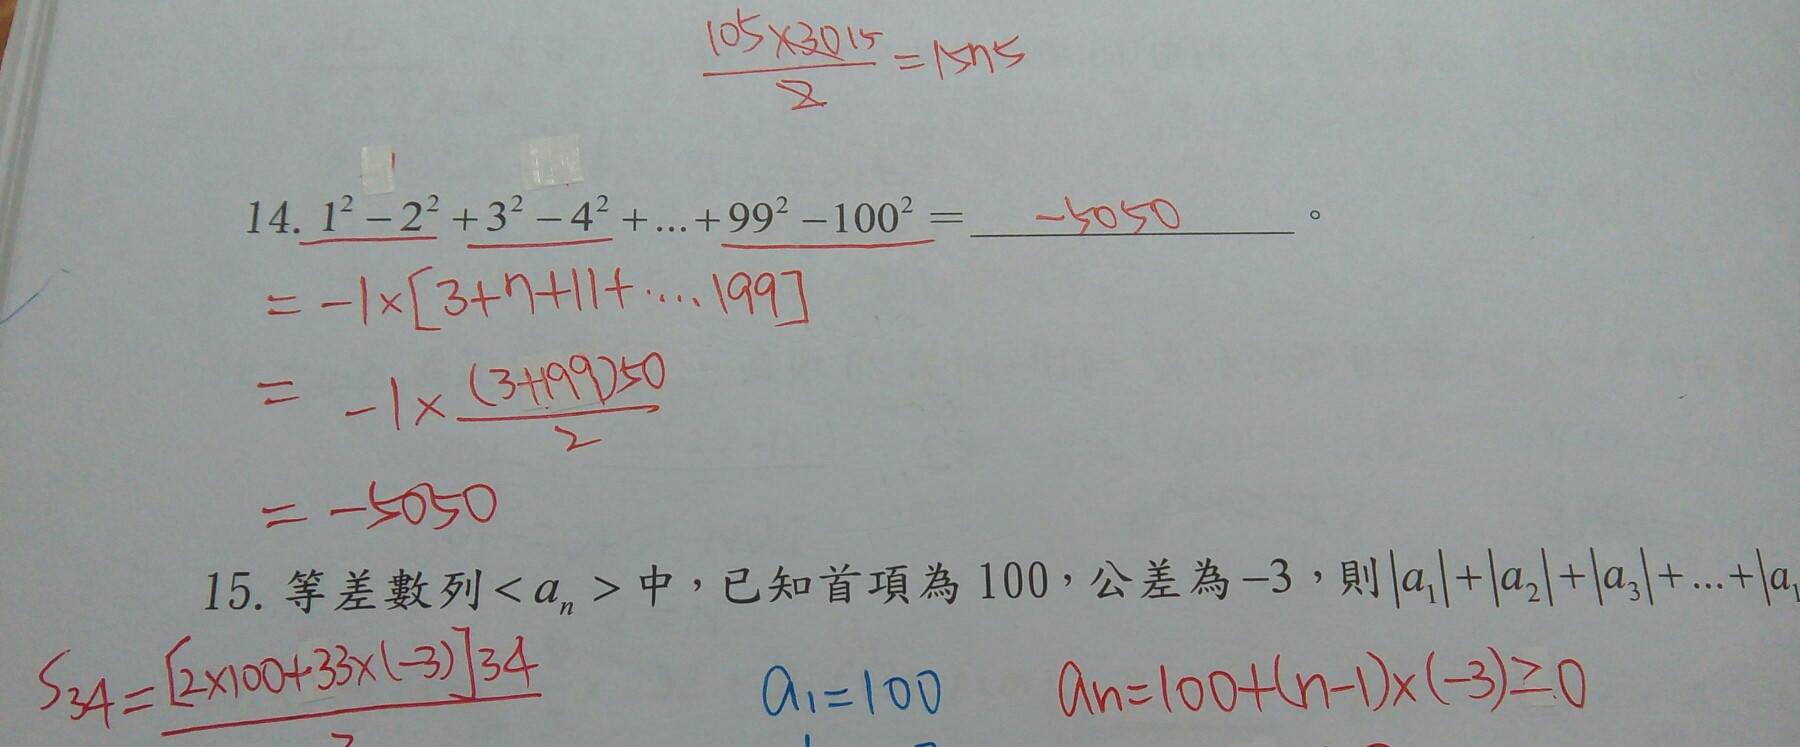 105×30 15
/2 = 1575
14. 1² − 2² + 3² − 4² + ... + 99² − 100² = −5050 。
= −1×[3+7+11+····199]
= −1× (3+199)50
/2
= −5050
15. 等差數列 < aₙ > 中，已知首項為 100，公差為 −3，則 |a₁| + |a₂| + |a₃| + ... + |a
S₃₄ = [2×100+33×(−3)]34
a₁=100 an=100+(n−1)×(−3)≥0